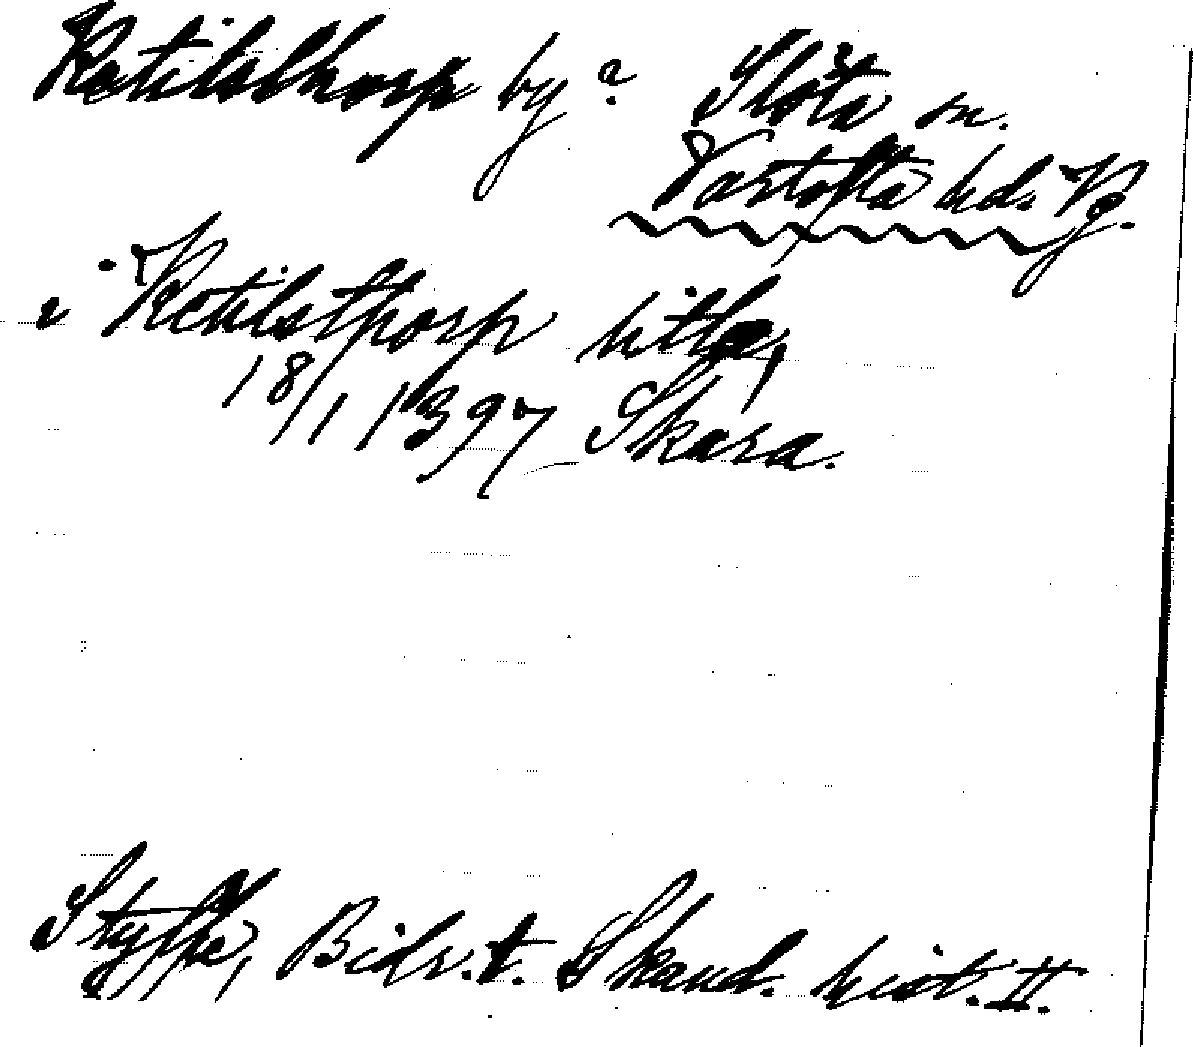 Ketilsthorp by? Slöta sn.
Vartofta hd. Vg.
i Ketilsthorp litla,
18/1 1397 Skara.
Styffe, Bidr. t. Skand. hist. II.